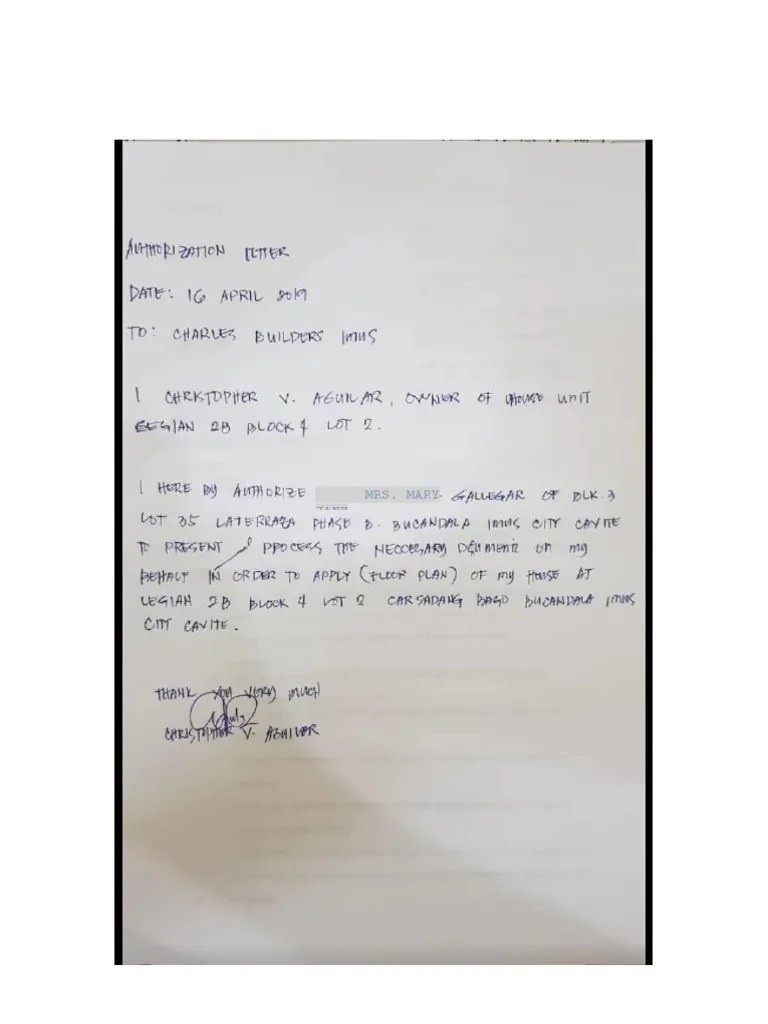 AUTHORIZATION LETTER
DATE: 16 APRIL 2019
TO: CHARLES BUILDERS IMUS
I CHRISTOPHER V. AGUILAR, OWNER OF HOUSE UNIT
LEGIAN 2B BLOCK 4 LOT 2.
I HERE BY AUTHORIZE MRS. MARY. GALLEGAR OF BLK. 3
LOT 35 LATERRAZA PHASE B. BUCANDALA IMUS CITY CAVITE
TO PRESENT & PROCESS THE NECCESARY DOUMENTS ON MY
BEHALF IN ORDER TO APPLY (FLOOR PLAN) OF MY HOUSE AT
LEGIAN 2B BLOCK 4 LOT 2 CARSADANG BAGO BUCANDALA IMUS
CITY CAVITE.
THANK YOU VERY MUCH
CHRISTOPHER V. AGUILAR